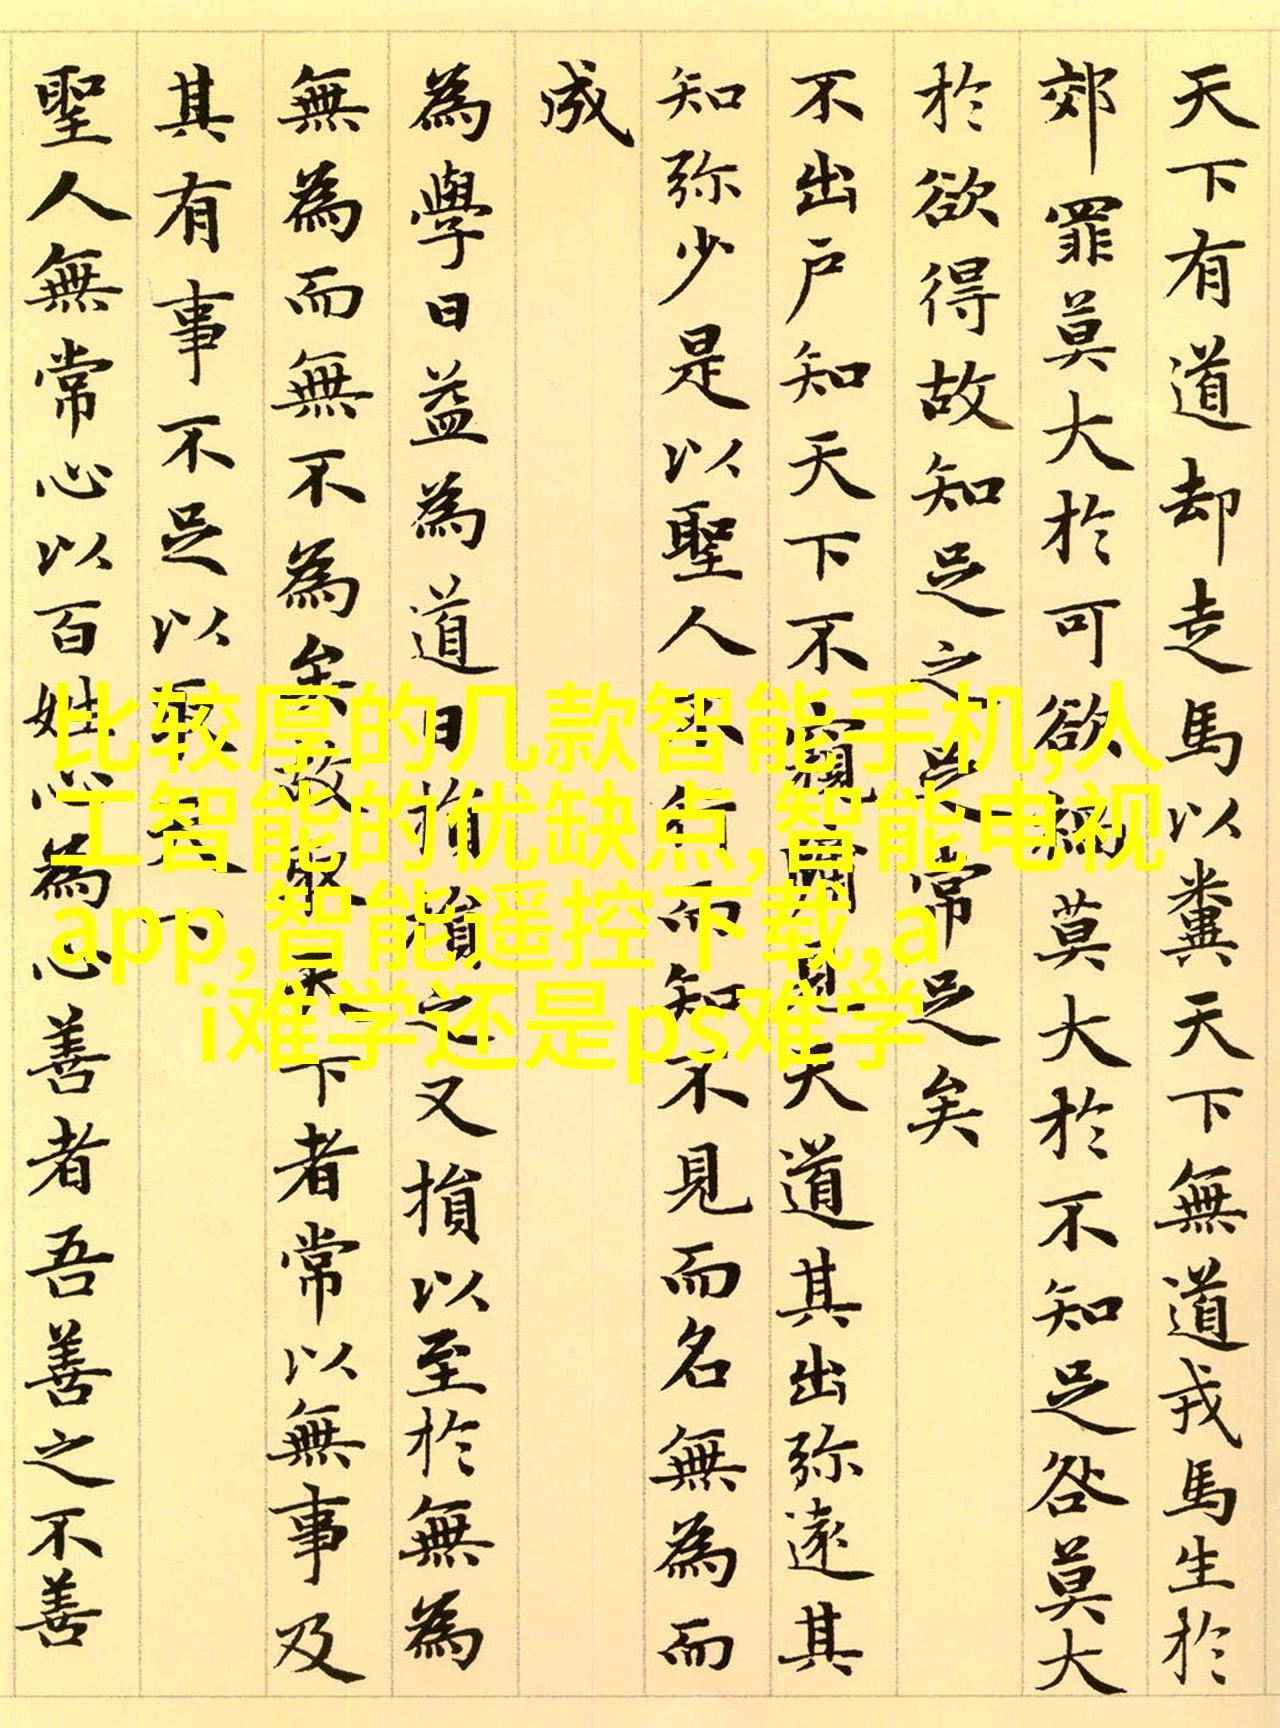 天下有道却走馬以糞天下無道戎馬生於
郊罪莫大於可欲禍莫大於不知足咎莫大
於欲得故知足之足常足矣
不出戶知天下不窺牖見天道其出弥遠其
知弥少是以聖人不行而知不見而名無為而
成
為學日益為道日損損之又損以至於無為
無為而無不為矣故取天下者常以無事及
其有事不足以取天下
聖人無常心以百姓心為心善者吾善之不善
比较厚的几款智能手机,人
工智能的优缺点,智能电视
app,智能遥控下载,a
i难学还是ps难学